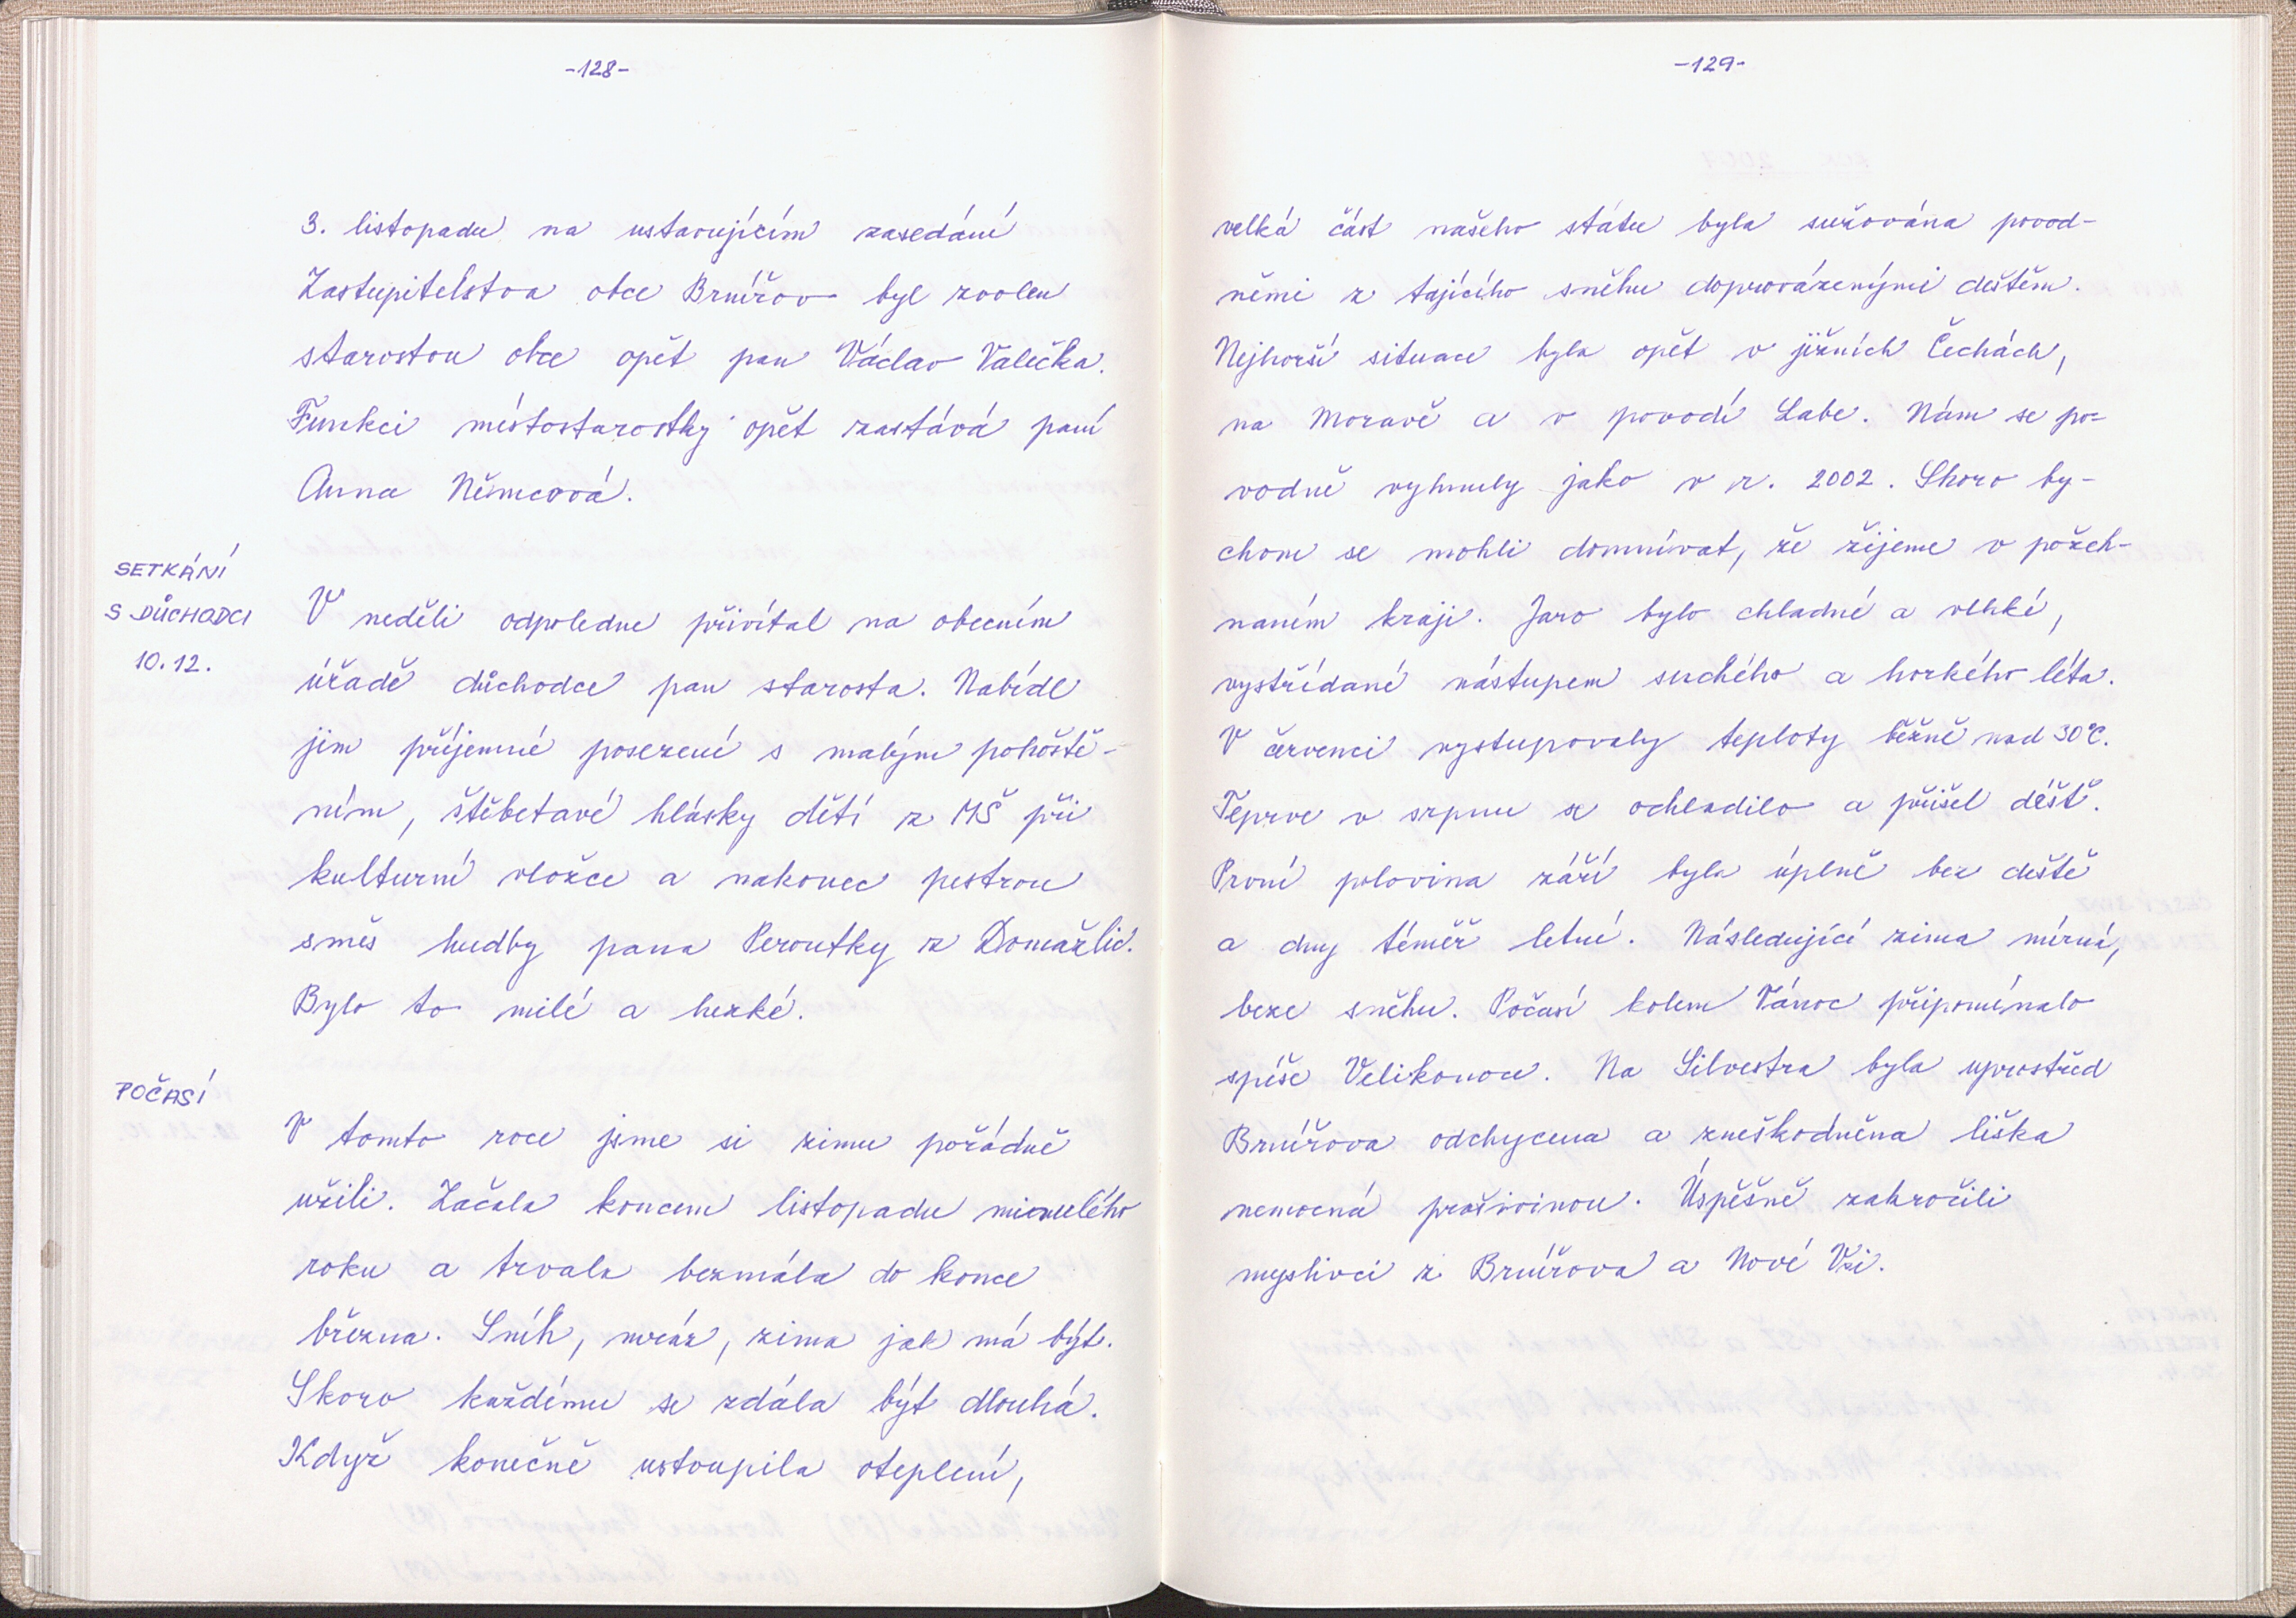 -128-
3. listopadu na ustavujícím zasedání
Zastupitelstva obce Brnířov byl zvolen
starostou obce opět pan Václav Valečka.
Funkci místostarostky opět zastává paní
Anna Němcová.
SETKÁNÍ
S DŮCHODCI
10.12.
V neděli odpoledne přivítal na obecním
úřadě důchodce pan starosta. Nabídl
jim příjemné posezení s malým pohoště-
ním, štěbetavé hlásky dětí z MŠ při
kulturní vložce a nakonec pestrou
směs hudby pana Peroutky z Domažlic.
Bylo to milé a hezké.
POČASÍ
V tomto roce jsme si zimu pořádně
užili. Začala koncem listopadu minulého
roku a trvala bezmála do konce
března. Sníh, mráz, zima jak má být.
Skoro každému se zdála být dlouhá.
Když konečně ustoupila oteplení,
-129-
velká část našeho státu byla sužována povod-
němi z tajícího sněhu doprovázenými deštěm.
Nejhorší situace byla opět v jižních Čechách,
na Moravě a v povodí Labe. Nám se po-
vodně vyhnuly jako v r. 2002. Skoro by-
chom se mohli domnívat, že žijeme v požeh-
naném kraji. Jaro bylo chladné a vlhké,
vystřídané nástupem suchého a horkého léta.
V červenci vystupovaly teploty běžně nad 30°C.
Teprve v srpnu se ochladilo a přišel déšť.
První polovina září byla úplně bez deště
a dny téměř letní. Následující zima mírná,
beze sněhu. Počasí kolem Vánoc připomínalo
spíše Velikonoce. Na Silvestra byla uprostřed
Brnířova odchycena a zneškodněna liška
nemocná prašivinou. Úspěšně zakročili
myslivci z Brnířova a Nové Vsi.